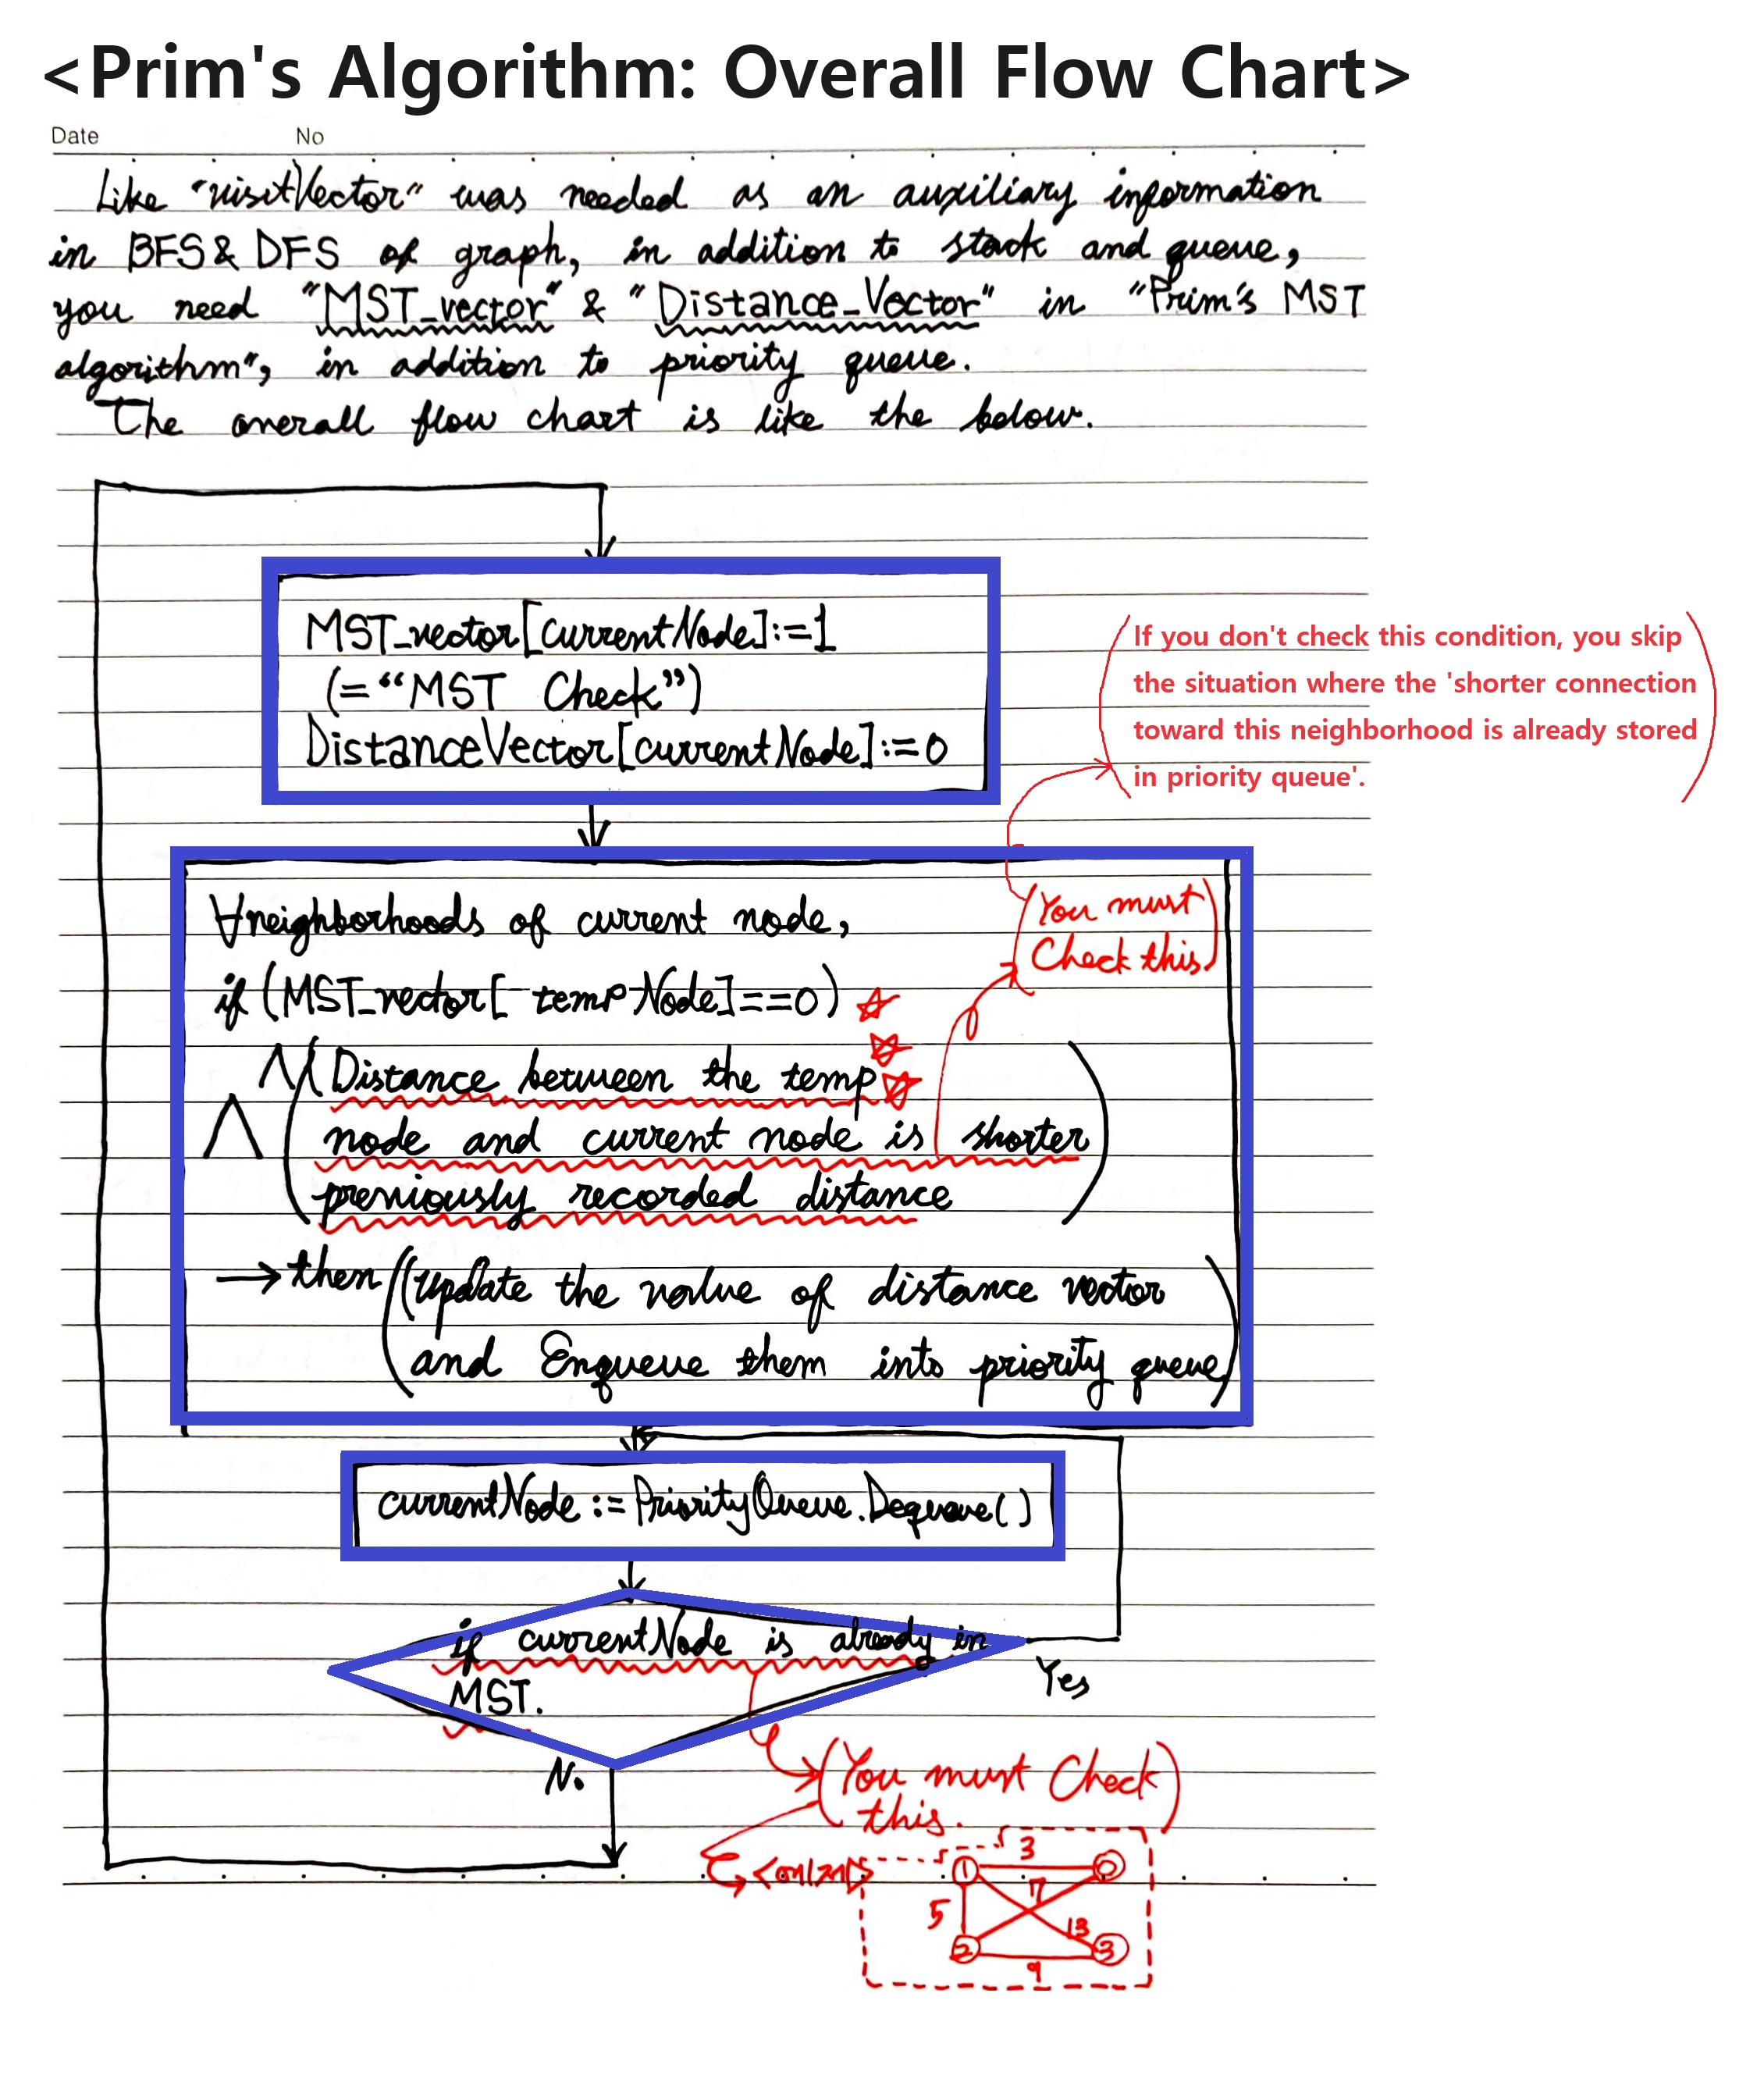 <Prim's Algorithm: Overall Flow Chart>
Date No
Like "visitVector" was needed as an auxiliary information
in BFS & DFS of graph, in addition to stack and queue,
you need "MST_vector" & "Distance_Vector" in "Prim's MST
algorithm", in addition to priority queue.
The overall flow chart is like the below.
MST_vector[currentNode]:=1
(="MST Check")
DistanceVector[currentNode]:=0
If you don't check this condition, you skip
the situation where the 'shorter connection
toward this neighborhood is already stored
in priority queue'.
∀neighborhoods of current node,
(You must
Check this)
if (MST_vector[tempNode]==0)
∧ (Distance between the temp
node and current node is shorter
previously recorded distance)
→ then (update the value of distance vector
and Enqueue them into priority queue)
currentNode := PriorityQueue.Dequeue()
if currentNode is already in
MST.
Yes
No
(You must Check
this.)
1 3 0
7
5 13
2 3
9